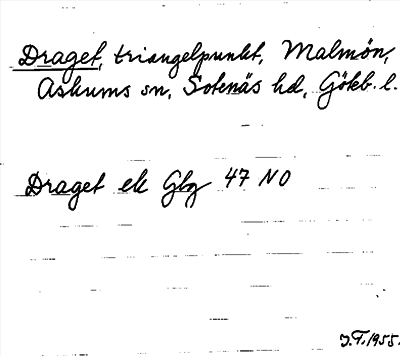 Draget, triangelpunkt, Malmön,
Askums sn, Sotenäs hd, Götkb. l.
Draget ek Gbg 47 NO
J.F. 1955.